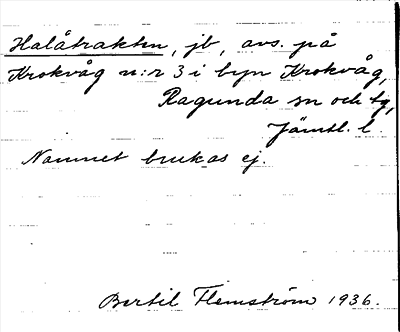 Halåtrakten, jb, avs. på
Krokvåg n:r 3 i byn Krokvåg,
Ragunda sn och tg,
Jämtl. l.
Namnet brukas ej.
Bertil Flemström 1936.